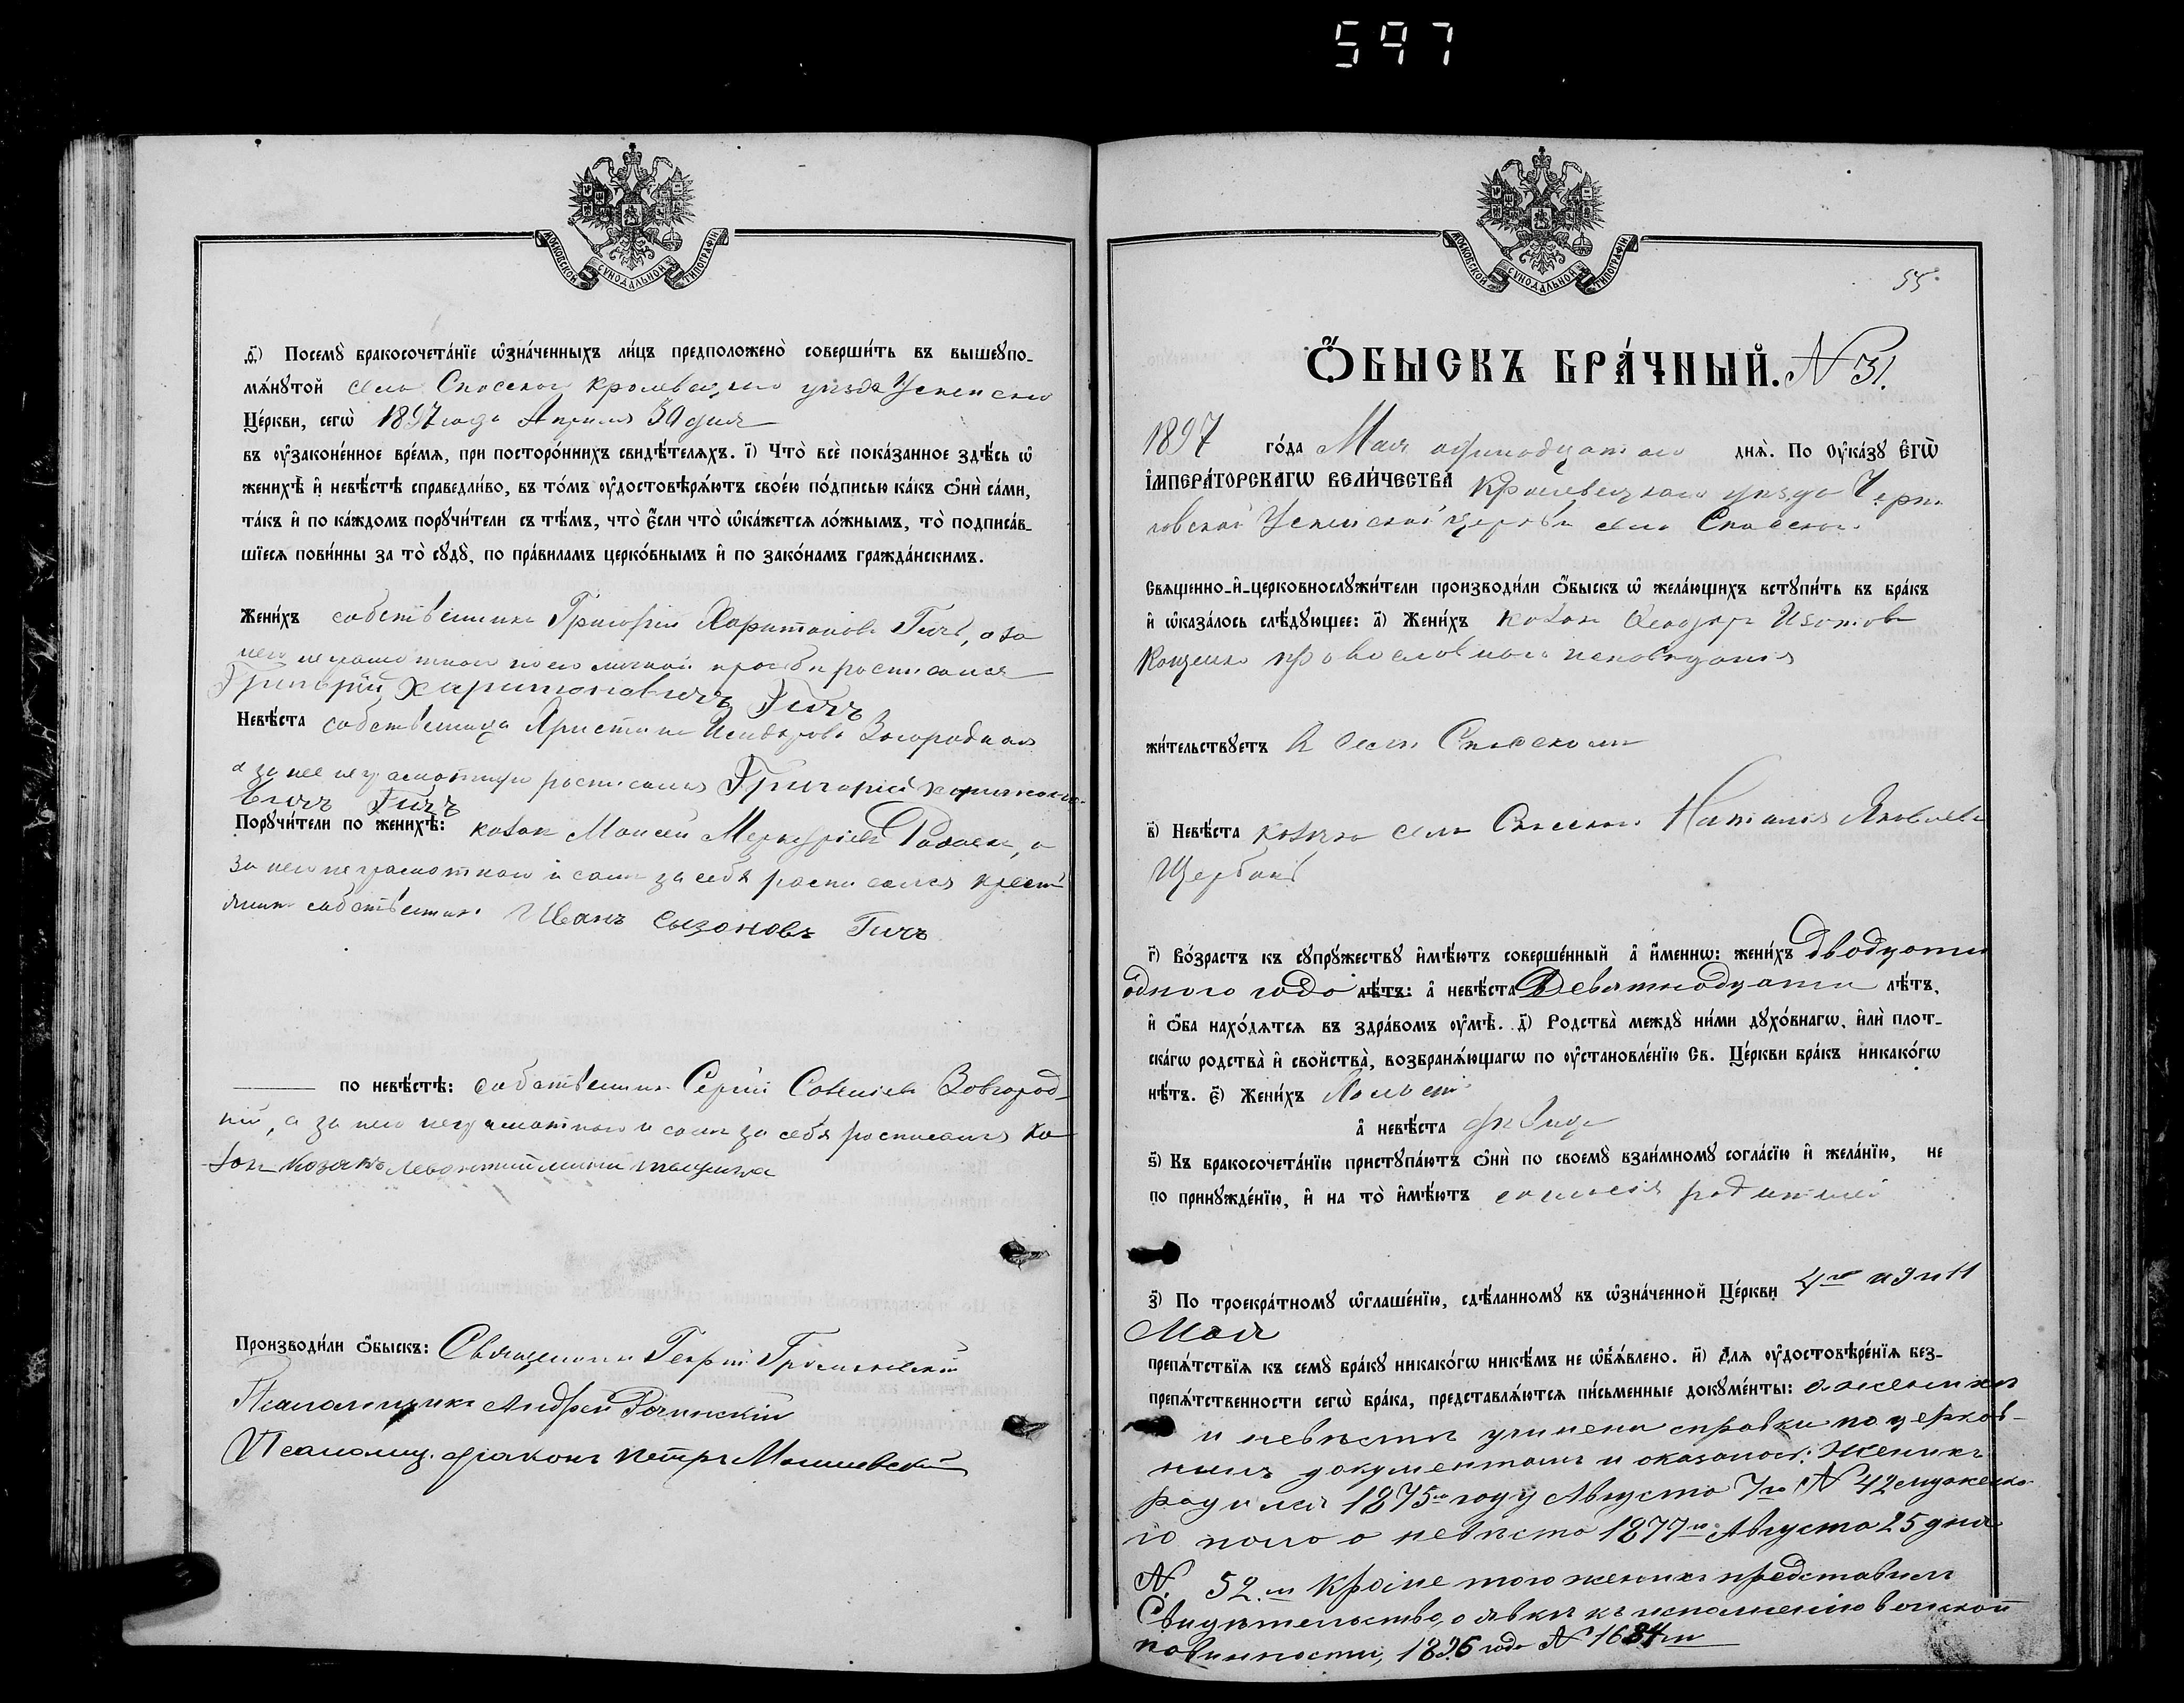 597
МОСКОВСКОЙ СѴНОДАЛЬНОЙ ТИПОГРАФІИ
ѳ҃) Посемꙋ̀ бракосочета́нїе ѡ҆зна́ченныхъ ли́цъ предположено̀ соверши́ть въ вышеꙋпо-
мѧ́нꙋтой села Спасскаго Кролевецкаго уѣзда Успенской
Це́ркви, сегѡ̀ 1897 года Апреля 30 дня
въ ᲂу҆законе́нное вре́мѧ, при посторо́ннихъ свидѣ́телѧхъ. і҃) Что̀ всѐ пока́занное здѣ́сь ѡ҆
женихѣ̀ и҆ невѣ́стѣ справедли́во, въ то́мъ ᲂу҆достовѣрѧ́ютъ свое́ю по́дписью ка́къ ѻ҆нѝ са́ми,
та́къ и҆ по ка́ждомъ порꙋчи́тели съ тѣ́мъ, что̀ є҆́сли что̀ ѡ҆ка́жетсѧ ло́жнымъ, то̀ подписа́в-
шїесѧ пови́нны за то̀ сꙋдꙋ̀, по пра́виламъ церко́внымъ и҆ по зако́намъ гражда́нскимъ.
Жени́хъ собственникъ Григорій Харитоновъ Гичъ, а за
него неграмотного по его личной просьбѣ росписался
Григорій Харитоновичъ Гичъ
Невѣ́ста собственница Христина Исидорова Загородная
а за нее неграмотную росписался Григорій Харитоно-
вичъ Гичъ
Порꙋчи́тели по женихѣ̀: козакъ Моисей Меркуріевъ, а
за него неграмотного и самъ за себя росписался крестъ
янинъ собственникъ Иванъ Сызоновъ Гичъ
по невѣ́стѣ: собственникъ Сергій Савеліевъ Загород-
ній, а за него неграмотного и самъ за себя росписался ко
закъ козакъ Леонтий
Производи́ли ѻ҆́быскъ: Священникъ Георгій
Псаломщикъ Андрей
Псаломщ. діаконъ Петръ
МОСКОВСКОЙ СѴНОДАЛЬНОЙ ТИПОГРАФІИ
55
Ѻ҆́БЫСКЪ БРА́ЧНЫЙ. N 31.
1897 го́да Мая одинадцатаго днѧ̀. По ᲂу҆ка́зꙋ Є҆гѡ̀
І҆мпера́торскагѡ Вели́чества Кролевецкаго уѣзда Черп-
ловской Успенской церкви села Спасского
Свѧщенно-и҆-церковнослꙋжи́тели производи́ли ѻ҆́быскъ ѡ҆ жела́ющихъ встꙋпи́ть въ бра́къ
и҆ ѡ҆каза́лось слѣ́дꙋющее: а҃) Жени́хъ козакъ Феодоръ Изотовъ
Кощенко православного исповѣданія
жи́тельствꙋетъ в селѣ Спасскомъ
в҃) Невѣ́ста козачка села Спасского Наталія Яковлева
Щербакъ
г҃) Во́зрастъ къ сꙋпрꙋ́жествꙋ и҆мѣ́ютъ соверше́нный а҆ и҆́меннѡ: жени́хъ двадцати
одного года лѣ́тъ: а҆ невѣ́ста Девятнадцати лѣ́тъ,
и҆ ѻ҆́ба нахо́дѧтсѧ въ здра́вомъ ᲂу҆мѣ̀. д҃) Родства̀ междꙋ̀ ни́ми дꙋхо́внагѡ, и҆лѝ плот-
ска́гѡ родства̀ и҆ свойства̀, возбранѧ́ющагѡ по ᲂу҆становле́нїю Св. Це́ркви бра́къ никако́гѡ
нѣ́тъ. є҃) Жени́хъ Холостъ
а҆ невѣ́ста дѣвица
ѕ҃) Къ бракосочета́нїю пристꙋпа́ютъ ѻ҆нѝ по своемꙋ̀ взаи́мномꙋ согла́сїю и҆ жела́нїю, не
по принꙋжде́нїю, и҆ на то̀ и҆мѣ́ютъ согласія родителей
з҃) По троекра́тномꙋ ѡ҆глаше́нїю, сдѣ́ланномꙋ въ ѡ҆зна́ченной Це́ркви 4го и 9 и 11
Мая
препѧ́тствїѧ къ семꙋ̀ бра́кꙋ никако́гѡ никѣ́мъ не ѡ҆б̾ѧ́влено. и҃) Длѧ ᲂу҆достовѣре́нїѧ без-
препѧ́тственности сегѡ̀ бра́ка, представлѧ́ютсѧ пи́сьменные докꙋме́нты: о женихѣ
и невѣстѣ учинены справки по церков-
нымъ документамъ и оказалось: Женихъ
родился 1875го году Августа 7го N 42 мужеска-
го пола а невѣста 1877го Августа 25 дня
N. 52.м Кроме того женихъ представилъ
Свидѣтельство, о явкѣ къ исполненію воинской
повинности, 1896 года N 1684м